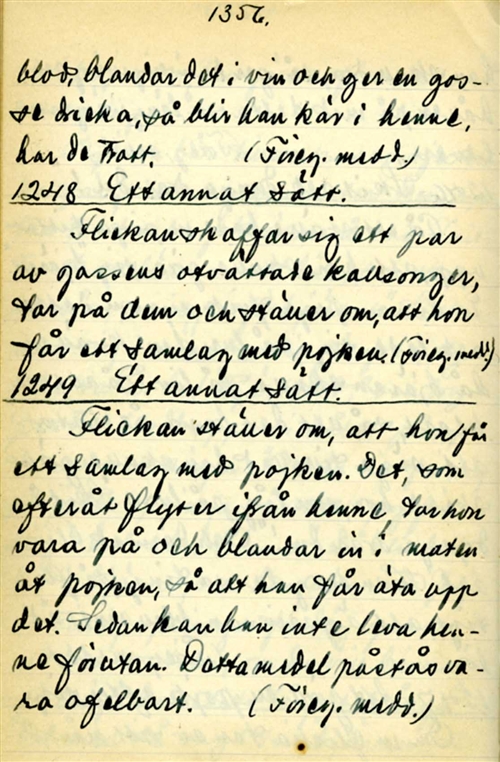 1356.
blod, blandar det i vin och ger en gos-
se dricka, så blir han kär i henne,
har de trott. (Föreg. medd.)
1248 Ett annat sätt.
Flickan skaffar sig ett par
av gossens otvättade kallsonger,
tar på dem och stäuer om, att hon
får ett samlag med pojken. (Föreg. medd.)
1249 Ett annat sätt.
Flickan stäuer om, att hon får
ett samlag med pojken. Det, som
efteråt flyter ifrån henne, tar hon
vara på och blandar in i maten
åt pojken, så att han får äta upp
det. Sedan kan han inte leva hen-
ne förutan. Detta medel påstås va-
ra ofelbart. (Föreg. medd.)